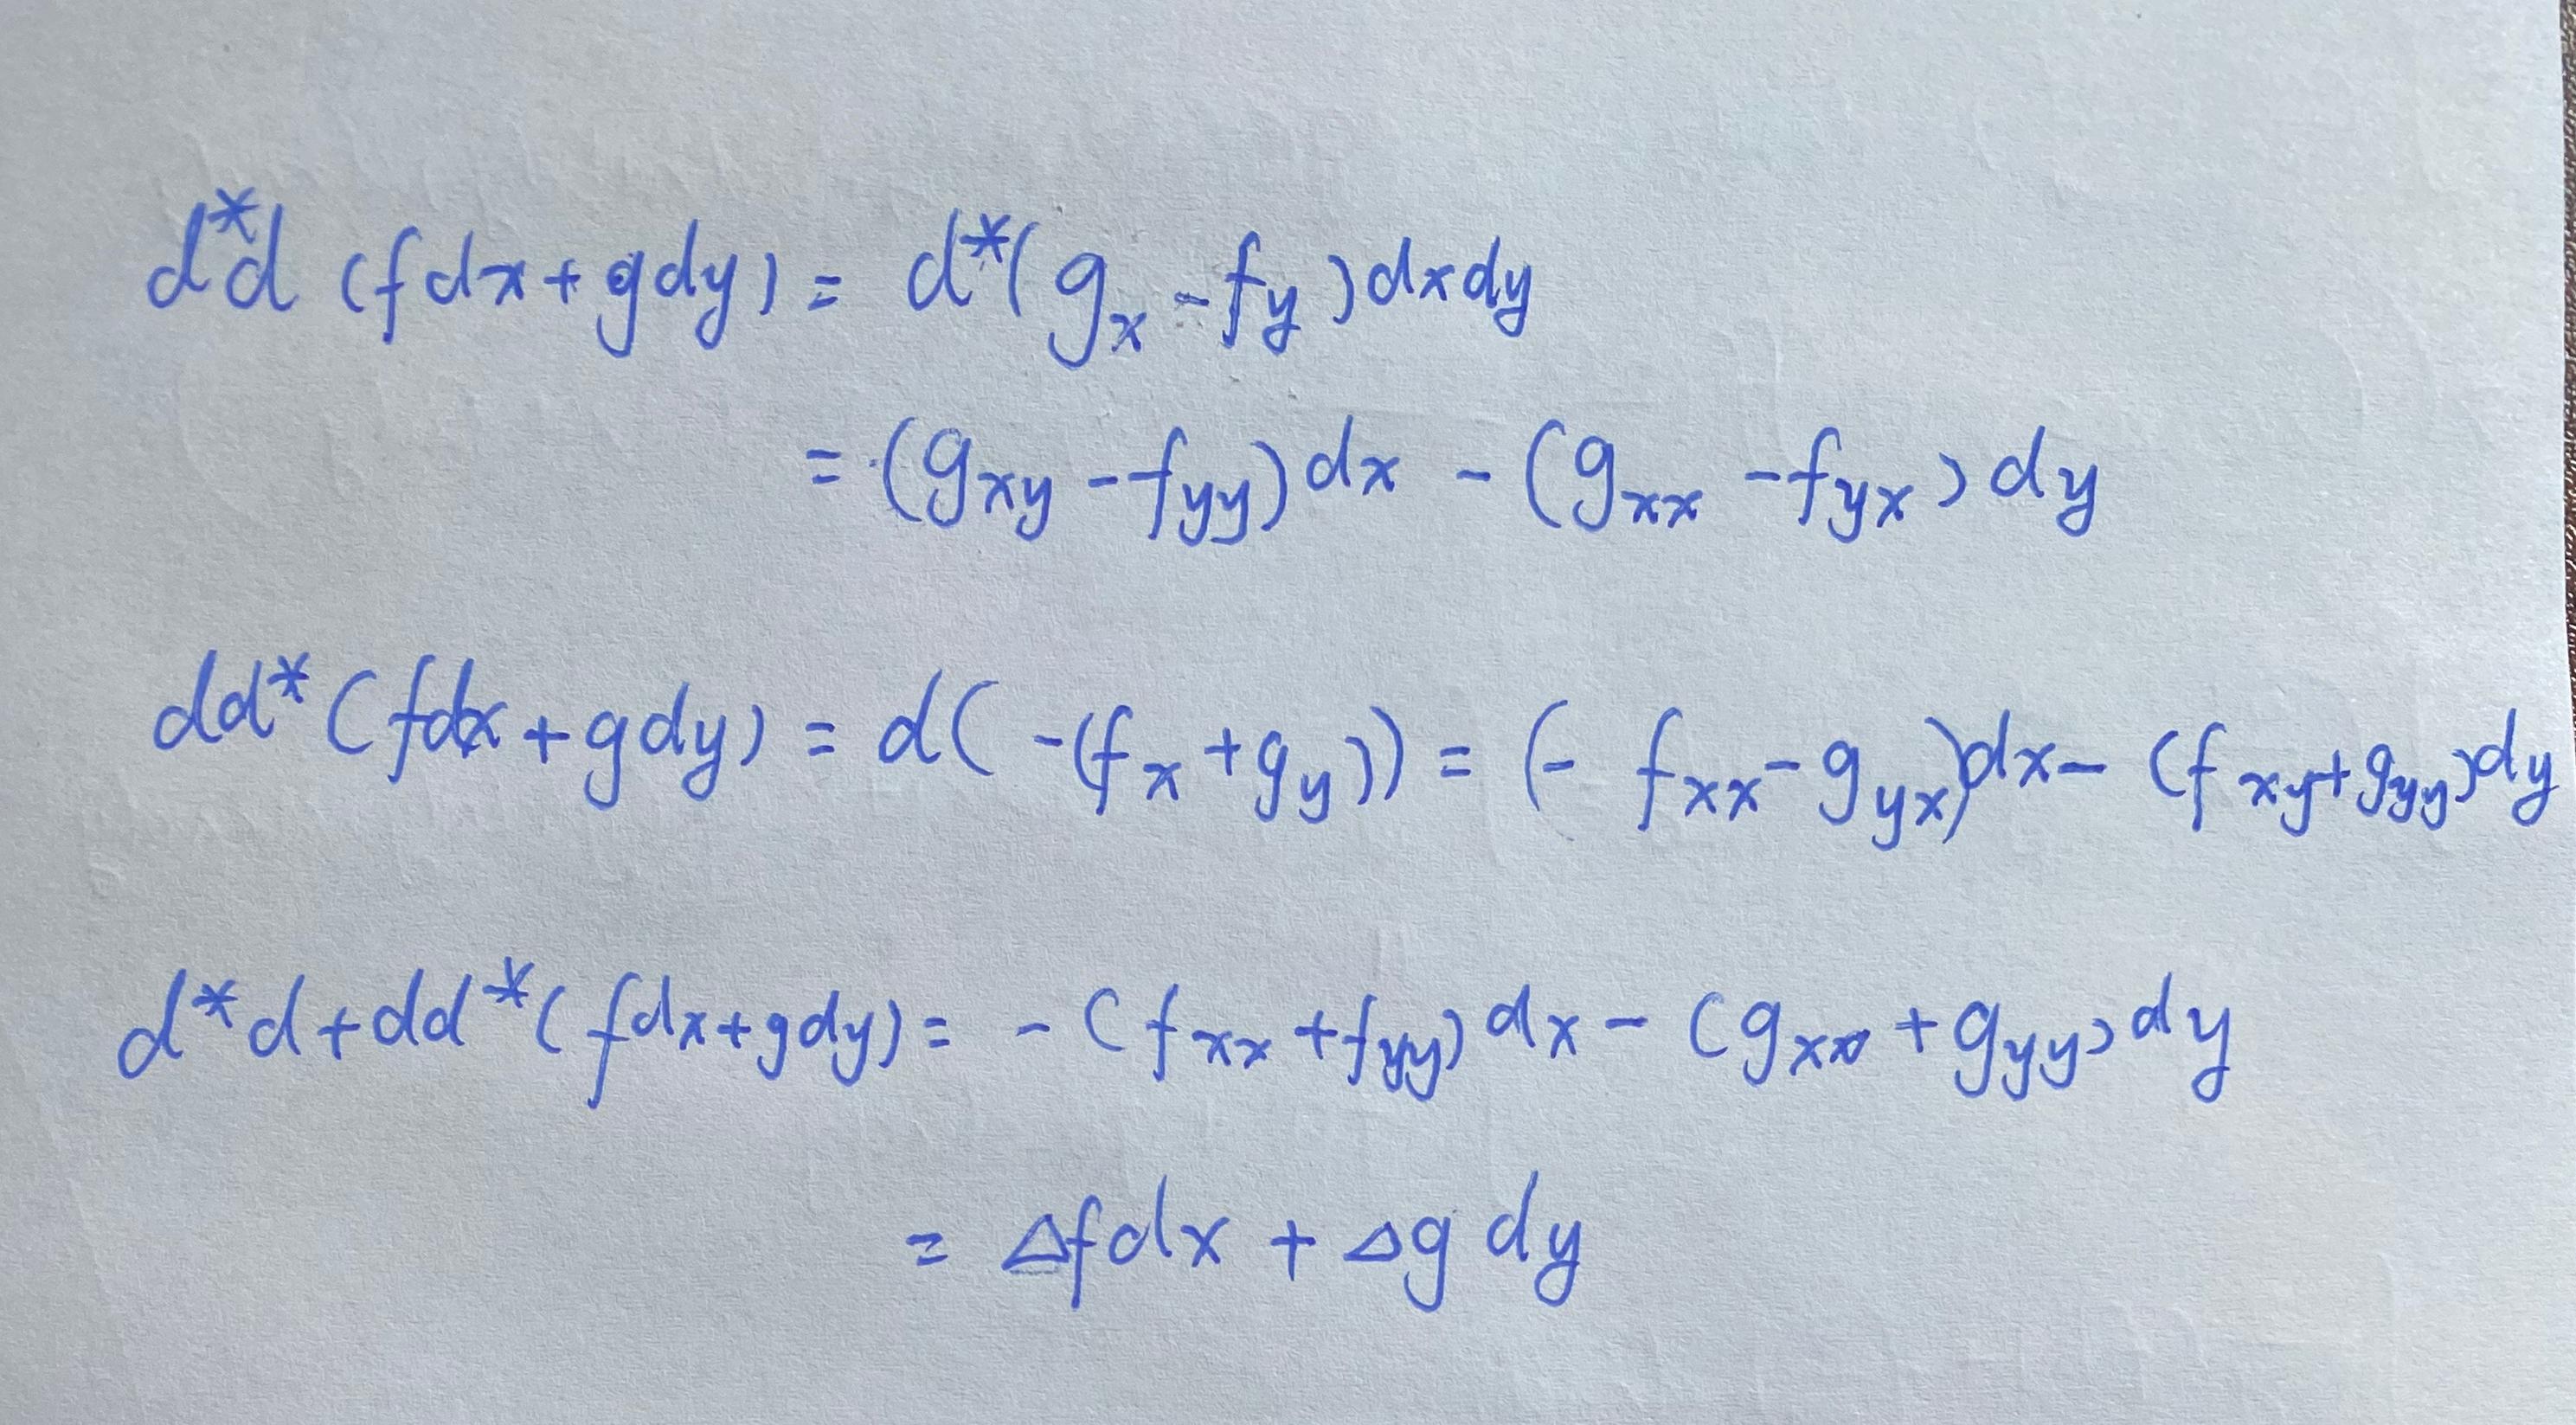 d*d (fdx+gdy) = d*(g_x - f_y)dxdy
= (g_xy - f_yy)dx - (g_xx - f_yx)dy
dd*(fdx+gdy) = d(-(f_x+g_y)) = (-f_xx - g_yx)dx - (f_xy+g_yy)dy
d*d+dd*(fdx+gdy) = -(f_xx+f_yy)dx - (g_xx+g_yy)dy
= Δfdx + Δg dy